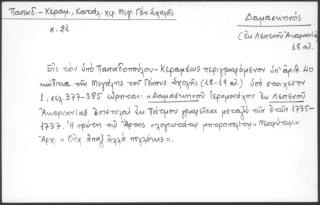 Παπαδ.- Κεραμ., Κατάλ. χφ. Μεγ. Γέν. Σχολῆς
σ. 21
Δαμασκηνός
(ἐν Λεπενοῦ Ἀκαρνανίας)
18 αἰ.
Εἰς τὸν ὑπὸ Παπαδοπούλου-Κεραμέως περιγραφόμενον ὑπ' ἀριθ. 40
κώδικα τῆς Μεγάλης τοῦ Γένους Σχολῆς (18-19 αἰ.) ὑπὸ στοιχεῖον
1, σελ. 377-385 εὕρηται: «Δαμασκηνοῦ Ἱερομονάχου ἐν Λεπενοῦ
Ἀκαρνανίας ἐπιστολαὶ ἐν Πάτμον γραφεῖσαι μεταξὺ τῶν ἐτῶν 1735-
1737. Ἡ πρώτη τῷ Ἄρτης «λογιωτάτῳ μητροπολίτῃ» Νεοφύτῳ».
Ἀρχ. «Οὐχ ἅπαξ ἀλλὰ πολλάκις».